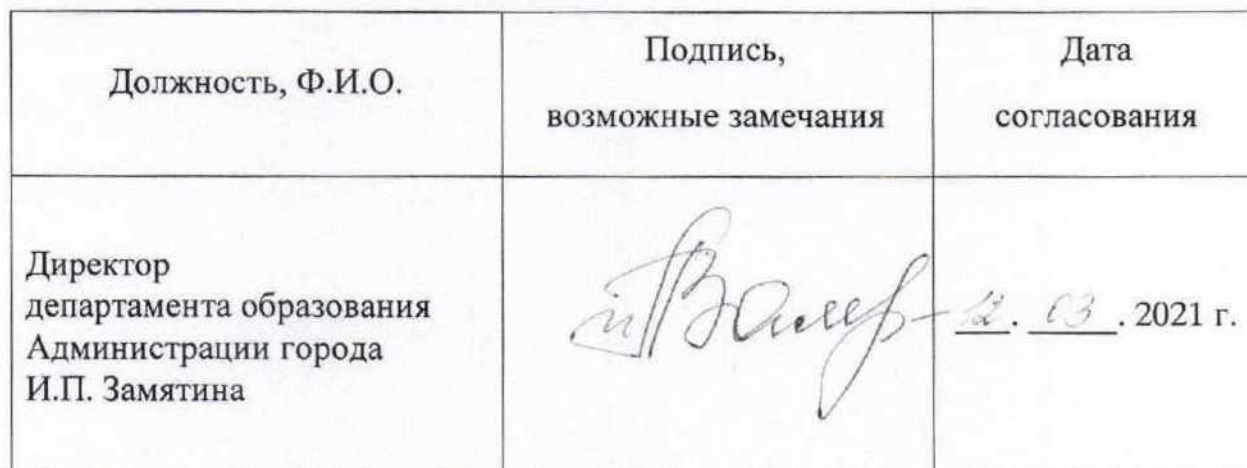 Должность, Ф.И.О.
Подпись,
возможные замечания
Дата
согласования
Директор
департамента образования
Администрации города
И.П. Замятина
12. 03. 2021 г.